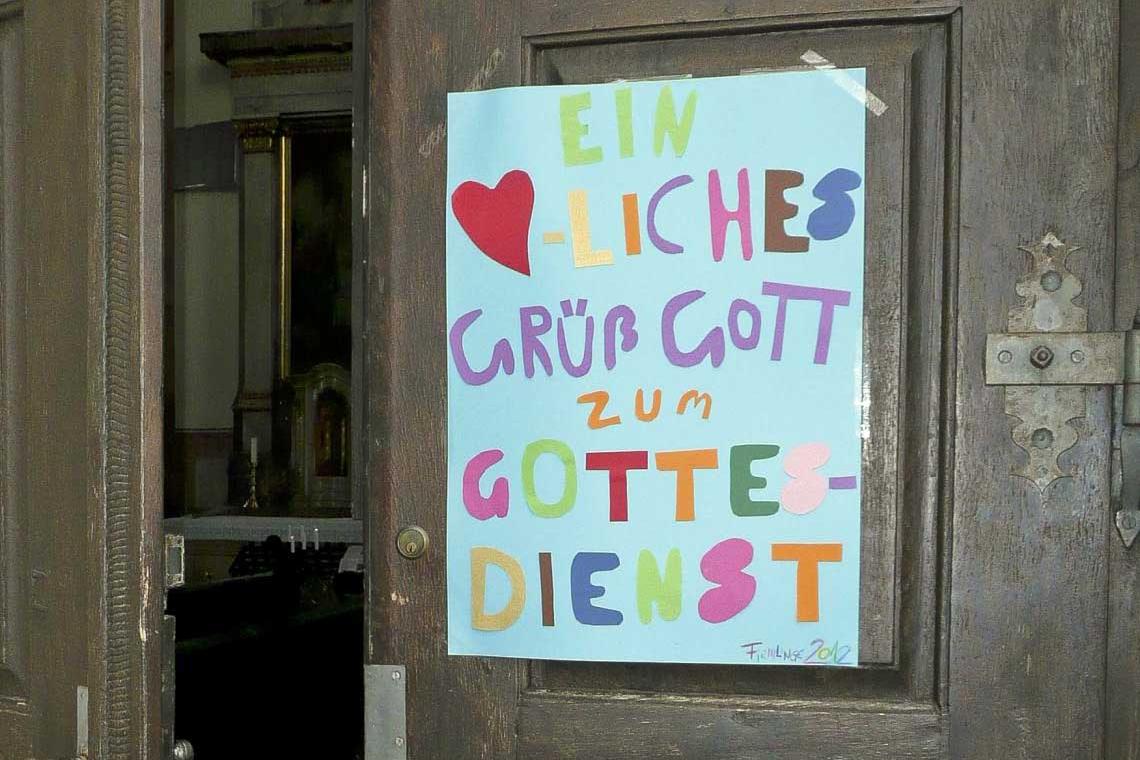 EIN
-LICHES
GRÜß GOTT
ZUM
GOTTES-
DIENST
FIRMLINGE 2012